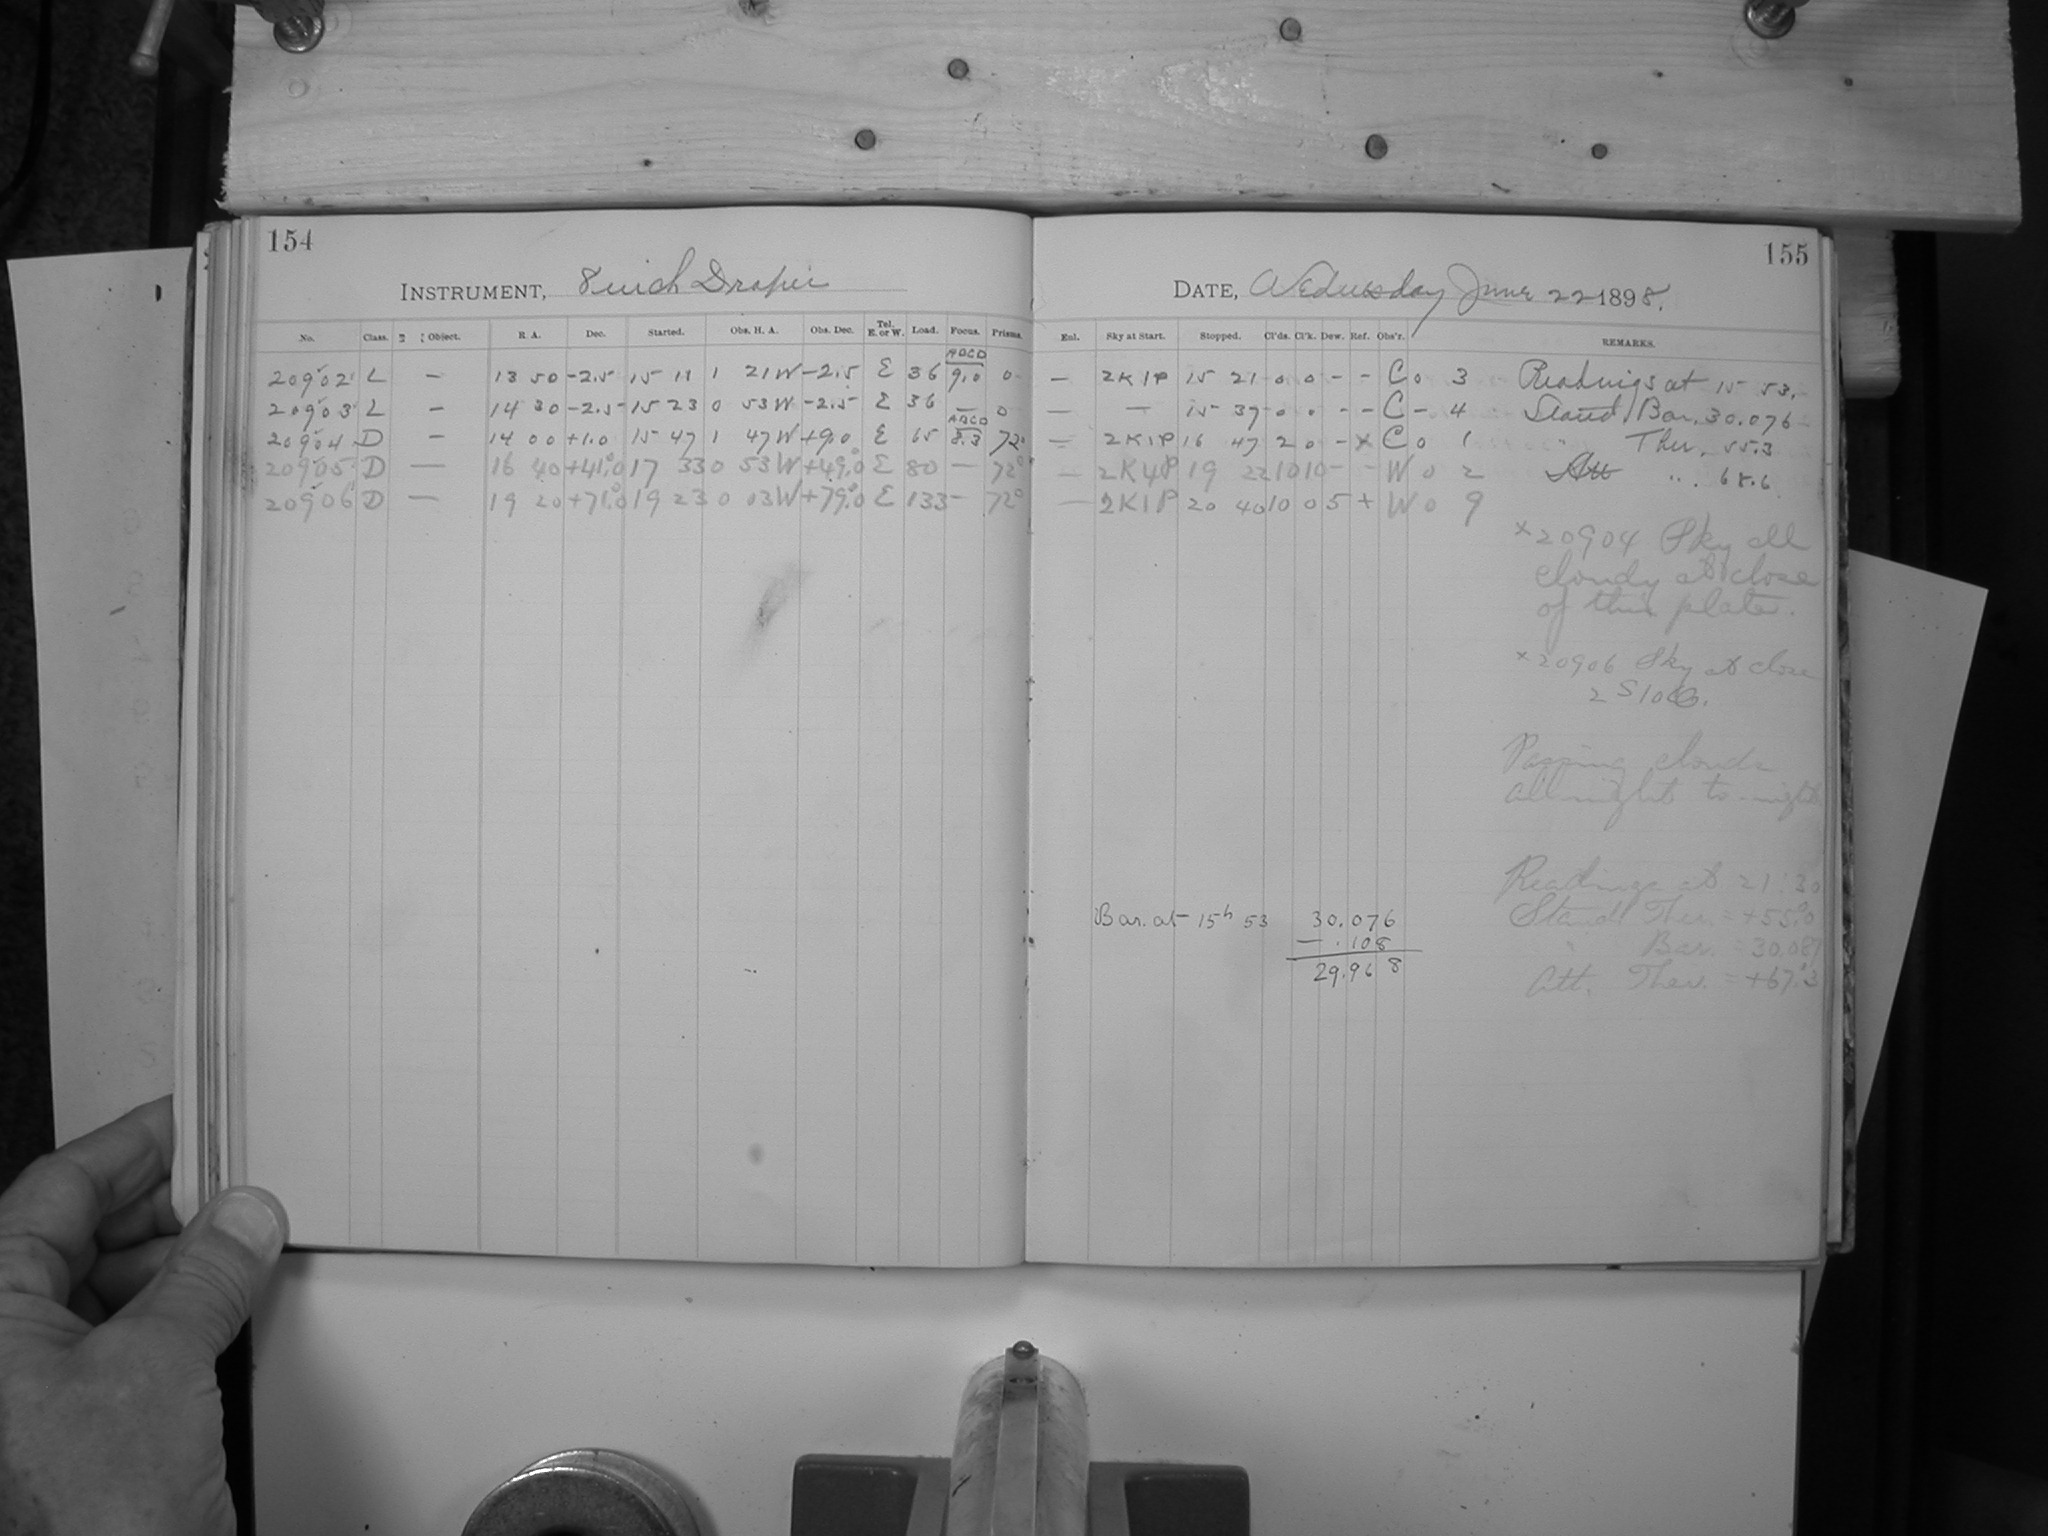 154
INSTRUMENT, 8 inch Draper
No. Class. Object. R. A. Dec. Started. Obs. H. A. Obs. Dec. Tel. E. or W. Load. Focus. Prisms.
20902 L — 13 50 -2.5 15 11 1 21W -2.5 E 36 ABCD 9.0 0
20903 L — 14 30 -2.5 15 23 0 53W -2.5 E 36 — 0
20904 D — 14 00 +1.0 15 47 1 47W +9.0 E 65 ABCD 8.3 72°
20905 D — 16 40 +41.0 17 33 0 53W +49.0 E 80 — 72°
20906 D — 19 20 +71.0 19 23 0 03W +79.0 E 133 — 72°
155
DATE, Wednesday June 22 1898.
Enl. Sky at Start. Stopped. Cl'ds. Cl'k. Dew. Ref. Obs'r. REMARKS.
— 2K1P 15 21 0 0 - - C 0 3 Readings at 15 53.
— — 15 37 0 0 - - C - 4 Stand Bar. 30.076
— 2K1P 16 47 2 0 - x C 0 1 " Ther. 55.3
— 2K4P 19 22 10 10 - - W 0 2 Att " 68.6
— 2K1P 20 40 10 0 5 + W 0 9
x 20904 Sky all
cloudy at close
of this plate.
x 20906 Sky at close
2 S 10
Passing clouds
all night to-night
Readings at 21:30
Stand. Ther. = +55.0
" Bar. = 30.087
Att. Ther. = +67.3
Bar. at 15h 53 30.076
— .108
29.968